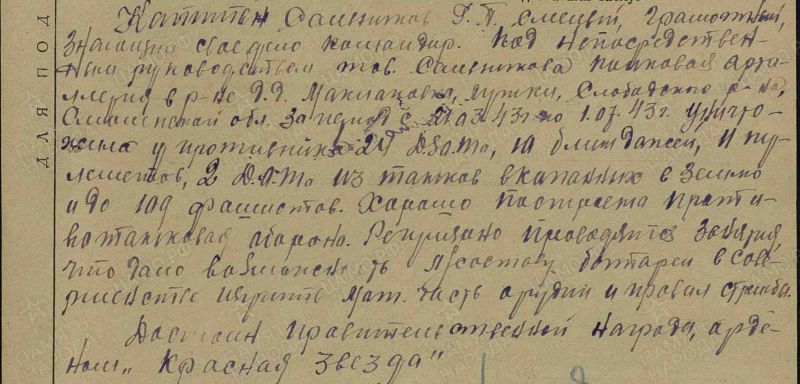 Капитан Саменитков Г.П. смелый, грамотный,
знающий свое дело командир. Под непосредствен-
ным руководством тов. Саменткова полковая арти-
ллерия в р-не Д.Д. Маклаковка, лужки, Слободского р-на,
Смоленской обл. за период с 21.03.43г по 1.07.43г. уничто-
жила у противника 21 Д.З.О.Т., 10 блиндажей, 11 пу-
леметов, 2 Д.О.Та из танков вкапанных в землю
и до 109 фашистов. Хорошо построена проти-
вотанковая оборона. Регулярно проводятся занятия,
что дало возможность л/составу батареи в сове-
ршенстве изучить мат. часть орудий и правил стрельбы.
Достоин правительственной награды, орде-
ном „Красная звезда"
ДЛЯ ПОД